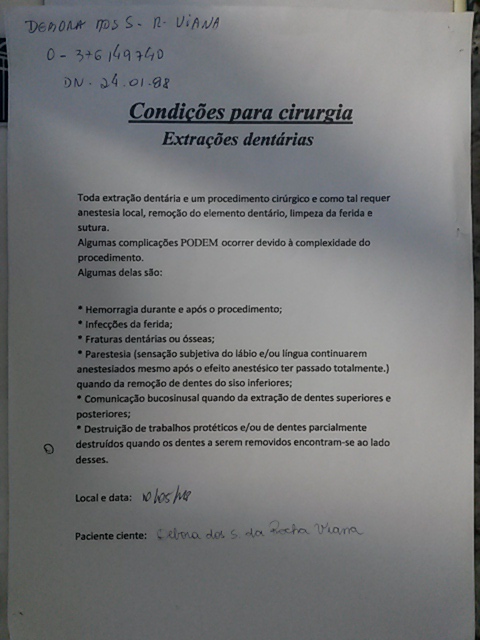 DEBORA DOS S. R. VIANA
0-376149740
DN - 24.01.98
Condições para cirurgia
Extrações dentárias
Toda extração dentária e um procedimento cirúrgico e como tal requer
anestesia local, remoção do elemento dentário, limpeza da ferida e
sutura.
Algumas complicações PODEM ocorrer devido à complexidade do
procedimento.
Algumas delas são:
* Hemorragia durante e após o procedimento;
* Infecções da ferida;
* Fraturas dentárias ou ósseas;
* Parestesia (sensação subjetiva do lábio e/ou língua continuarem
anestesiados mesmo após o efeito anestésico ter passado totalmente.)
quando da remoção de dentes do siso inferiores;
* Comunicação bucosinusal quando da extração de dentes superiores e
posteriores;
* Destruição de trabalhos protéticos e/ou de dentes parcialmente
destruídos quando os dentes a serem removidos encontram-se ao lado
desses.
Local e data:
Paciente ciente: Debora dos S. da Rocha Viana